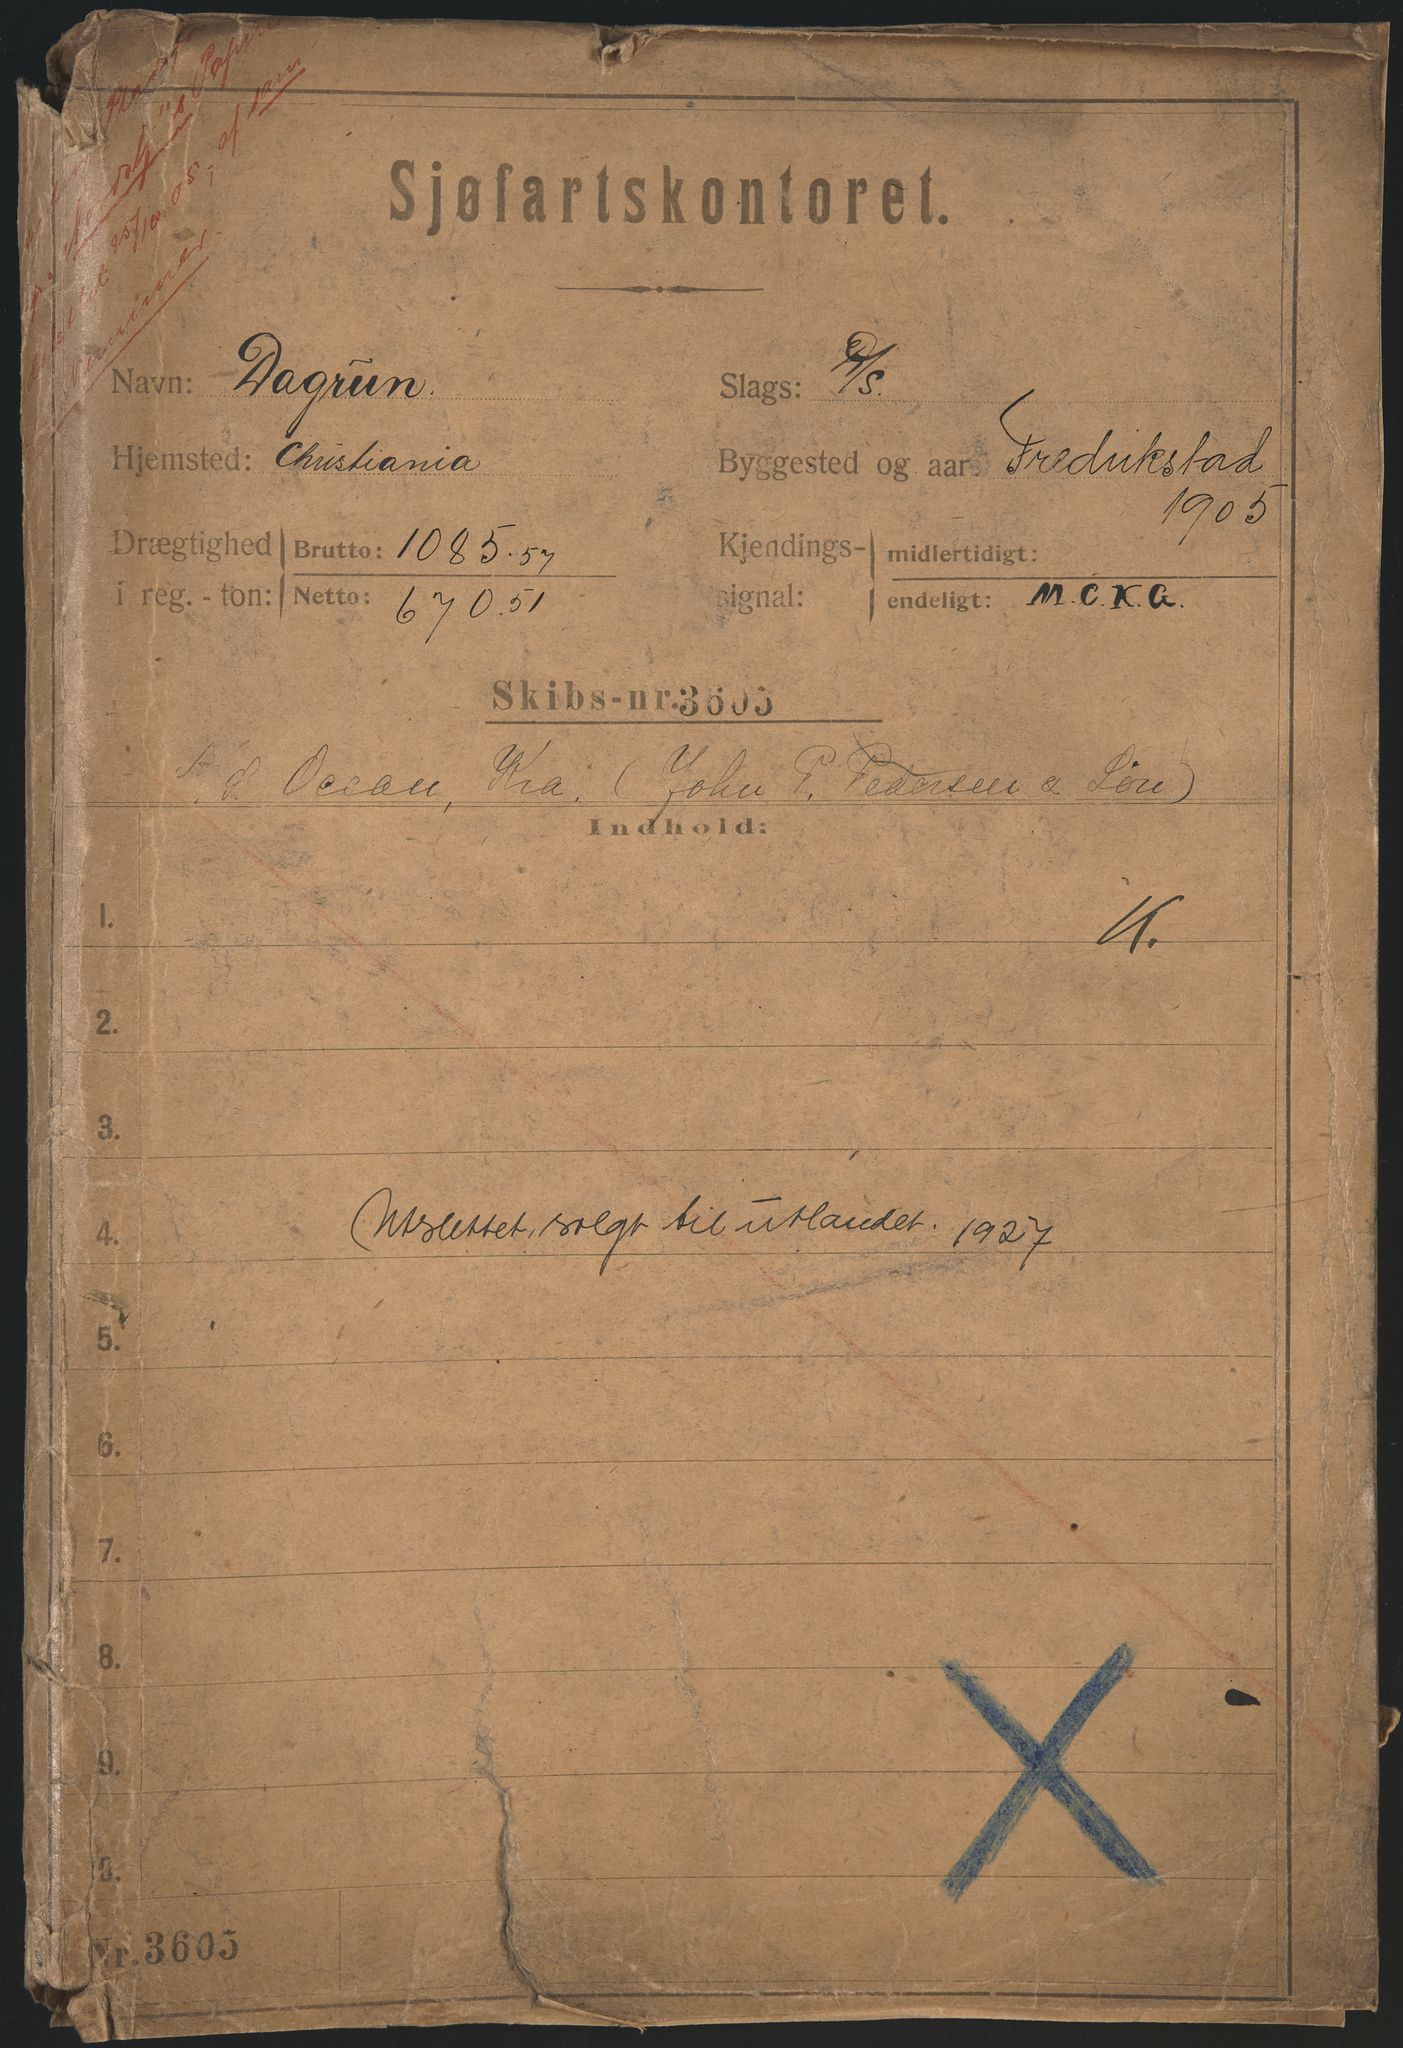 Sjøfartskontoret.
Navn: Dagrun. Slags: D/S.
Hjemsted: Christiania Byggested og aar: Fredrikstad
1905
Drægtighed i reg.-ton: Brutto: 1085.57 Kjendings-signal: midlertidigt:
Netto: 670.51 endeligt: M.C.K.G.
Skibs-nr. 3605
A.S. Ocean, Kra. (John P. Pedersen & Søn)
Indhold:
1. K.
2.
3.
4. Utslettet, solgt til utlandet. 1927
5.
6.
7.
8.
9.
0.
Nr. 3605
25/10.05, af